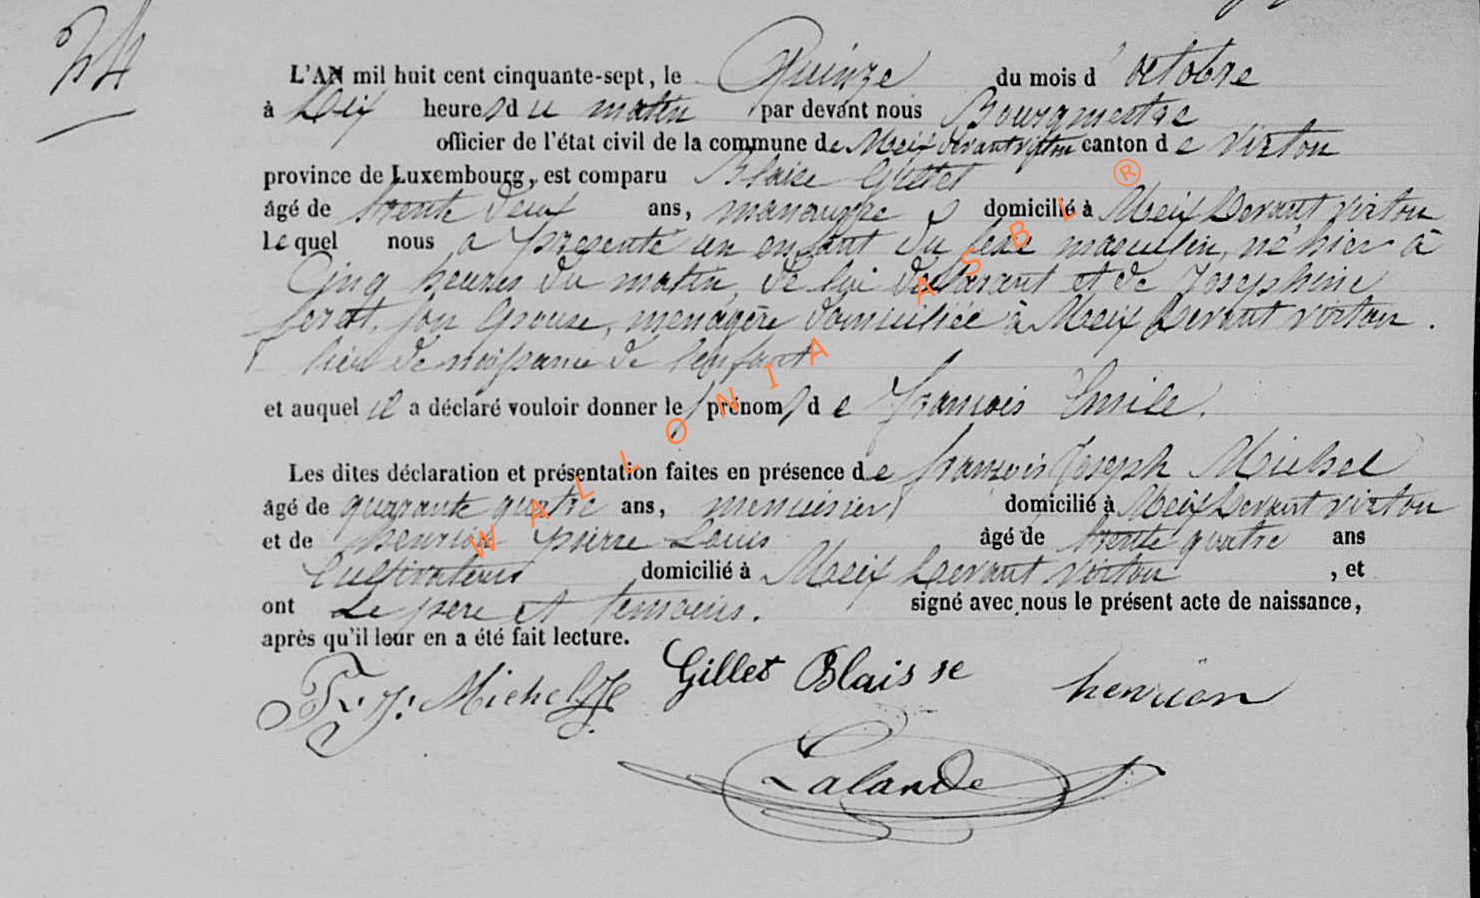 34
L'AN mil huit cent cinquante-sept, le Quinze du mois d' octobre
à Dix heures du matin par devant nous Bourgmestre
officier de l'état civil de la commune de Meix devant virton canton de virton
province de Luxembourg, est comparu Blaise Gillet
âgé de trente deux ans, manœuvre domicilié à Meix Devant virton
lequel nous a présenté un enfant du sexe masculin, né hier à
Cinq heures du matin, de lui déclarant et de Josephine
son épouse, menagère domiciliée à Meix Devant virton.
lieu de naissance de l'enfant
et auquel il a déclaré vouloir donner les prénoms de françois Emile.
Les dites déclaration et présentation faites en présence de françois Joseph Michel
âgé de quarante quatre ans, menuisier domicilié à Meix Devant virton
et de henrion pierre Louis âgé de trente quatre ans
Cultivateur domicilié à Meix Devant virton , et
ont Le père et temoins. signé avec nous le présent acte de naissance,
après qu'il leur en a été fait lecture.
F. J. Michel Gillet Blaisse henrion
Lalande
WALLONIA ASBL ®